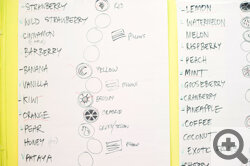 - STRAWBERRY RED
- WILD STRAWBERRY
- CINNAMON
- BARBERRY
- BANANA YELLOW
- VANILLA
- KIWI BROWN
- ORANGE ORANGE
- PEAR
- HONEY
- PAPAYA
- LEMON
- WATERMELON
- MELON
- RASPBERRY
- PEACH
- MINT
- GOOSEBERRY
- CRANBERRY
- PINEAPPLE
- COFFEE
- COCONUT
- EXOTIC
- CHERRY